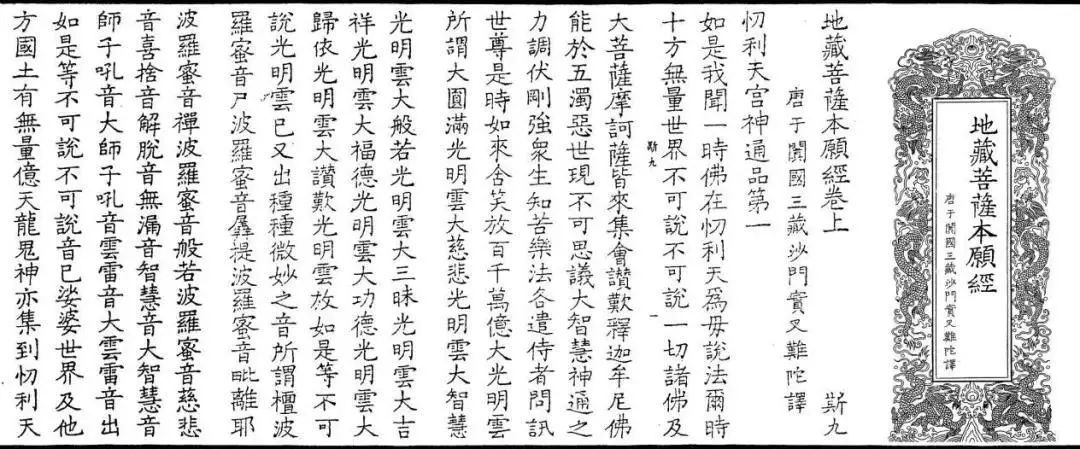 地藏菩薩本願經
唐于闐國三藏沙門實叉難陀譯
地藏菩薩本願經卷上 斯九
唐于闐國三藏沙門實叉難陀譯
忉利天宮神通品第一
如是我聞一時佛在忉利天為母說法爾時
十方無量世界不可說不可說一切諸佛及
斯九 一
大菩薩摩訶薩皆來集會讚歎釋迦牟尼佛
能於五濁惡世現不可思議大智慧神通之
力調伏剛強衆生知苦樂法各遣侍者問訊
世尊是時如來含笑放百千萬億大光明雲
所謂大圓滿光明雲大慈悲光明雲大智慧
光明雲大般若光明雲大三昧光明雲大吉
祥光明雲大福德光明雲大功德光明雲大
歸依光明雲大讚歎光明雲放如是等不可
說光明雲已又出種種微妙之音所謂檀波
羅蜜音尸波羅蜜音羼提波羅蜜音毗離耶
波羅蜜音禪波羅蜜音般若波羅蜜音慈悲
音喜捨音解脫音無漏音智慧音大智慧音
師子吼音大師子吼音雲雷音大雲雷音出
如是等不可說不可說音已娑婆世界及他
方國土有無量億天龍鬼神亦集到忉利天